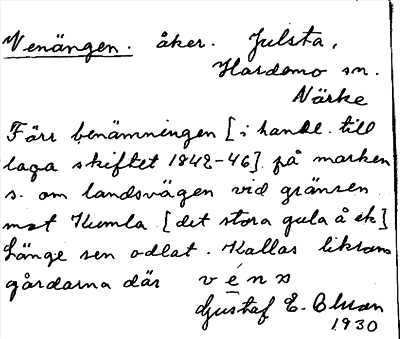 Venängen. åker. Julsta,
Hardemo sn.
Närke
Förr benämningen [i handl. till
laga skiftet 1842-46] på marken
s. om landsvägen vid gränsen
mot Kumla. [det stora gula å ek]
Länge sen odlat. Kallas liksom
gårdarna där véns
Gustaf E.
1930